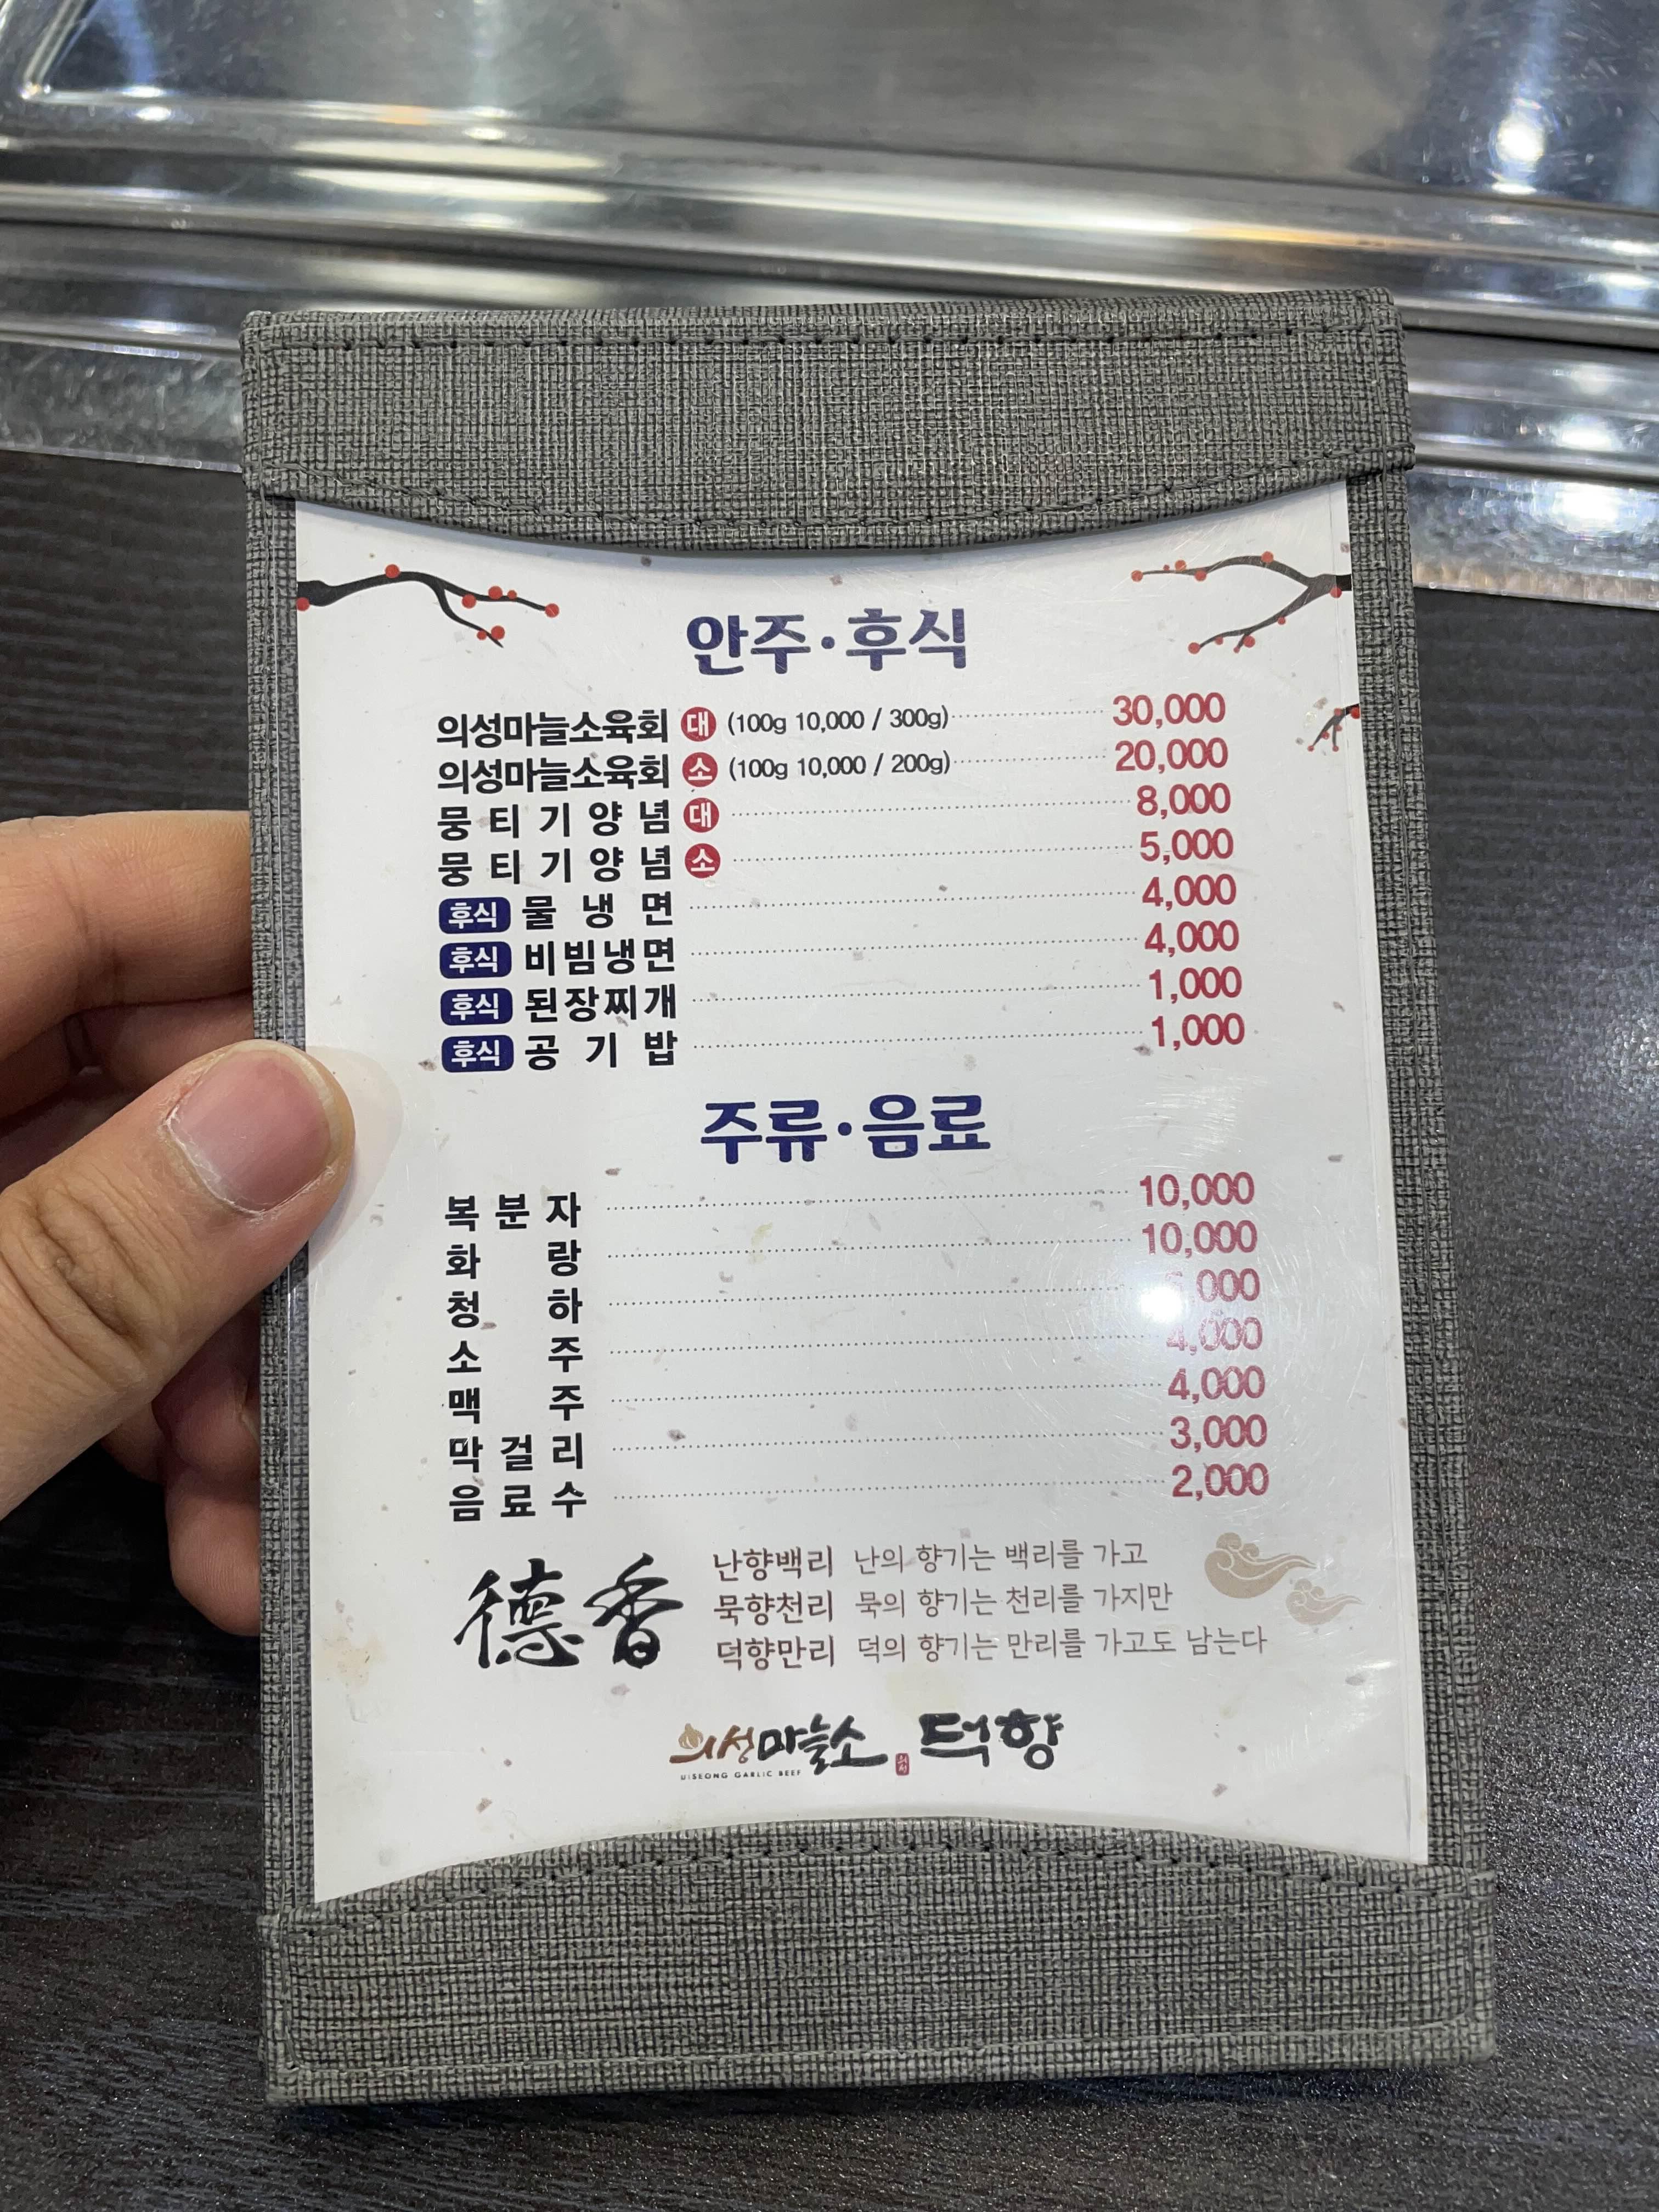 안주·후식
의성마늘소육회 대 (100g 10,000 / 300g) 30,000
의성마늘소육회 소 (100g 10,000 / 200g) 20,000
뭉티기양념 대 8,000
뭉티기양념 소 5,000
후식 물냉면 4,000
후식 비빔냉면 4,000
후식 된장찌개 1,000
후식 공기밥 1,000
주류·음료
복분자 10,000
화랑 10,000
청하
소주 4,000
맥주 4,000
막걸리 3,000
음료수 2,000
德香
난향백리 난의 향기는 백리를 가고
묵향천리 묵의 향기는 천리를 가지만
덕향만리 덕의 향기는 만리를 가고도 남는다
의성마늘소 덕향
UISEONG GARLIC BEEF